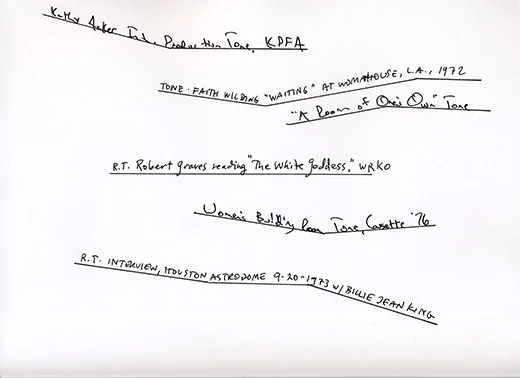 Kathy Acker Int. Production Tone, KPFA
TONE · FAITH WILDING "WAITING" AT WOMANHOUSE, L.A., 1972
"A Room of One's Own" Tone
R.T. Robert Graves reading "The White Goddess," WRKO
Women's Building Room Tone, Cassette '76
R.T. INTERVIEW, HOUSTON ASTRODOME 9-20-1973 w/ BILLIE JEAN KING